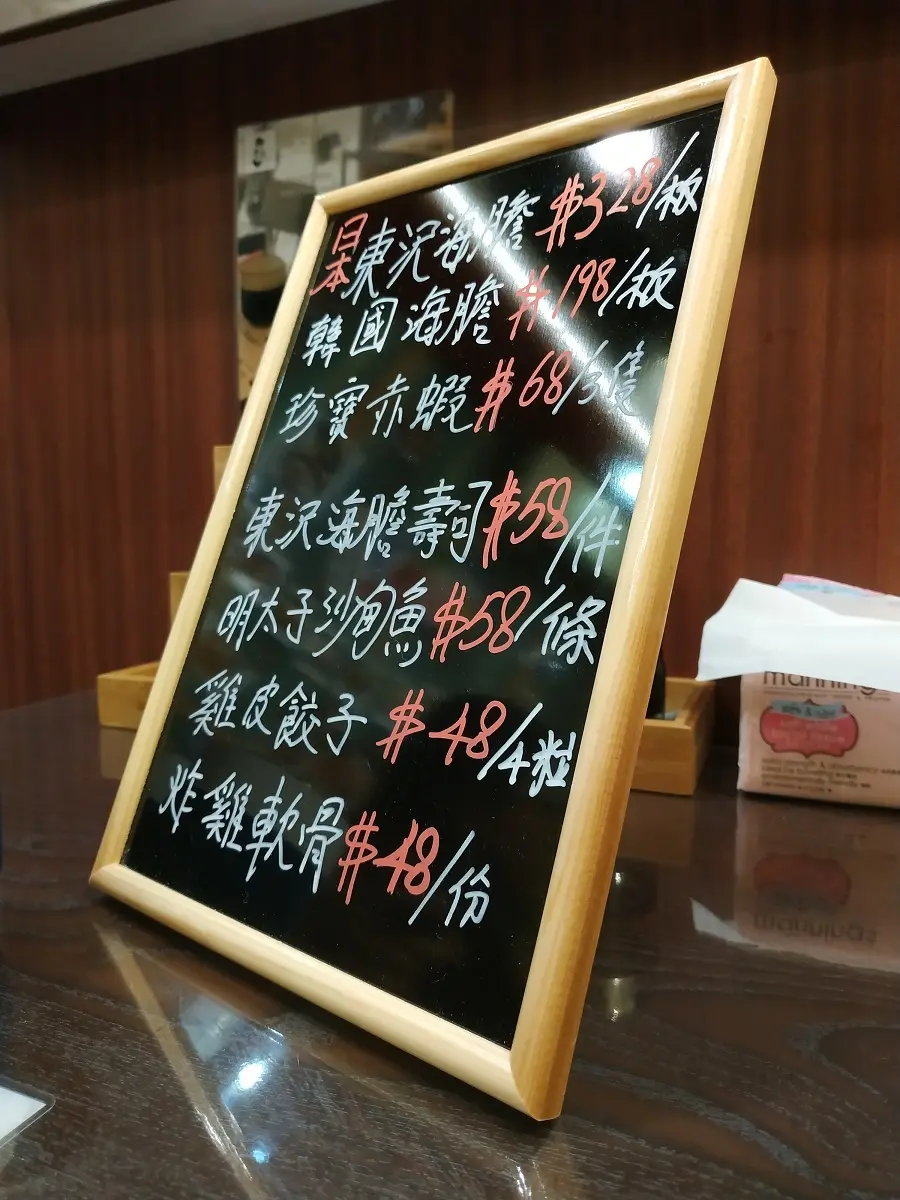 日本東沢海膽 $328/板
韓國海膽 $198/板
珍寶赤蝦 $68/3隻
東沢海膽壽司 $58/件
明太子沙甸魚 $58/條
雞皮餃子 $48/4粒
炸雞軟骨 $48/份
manning